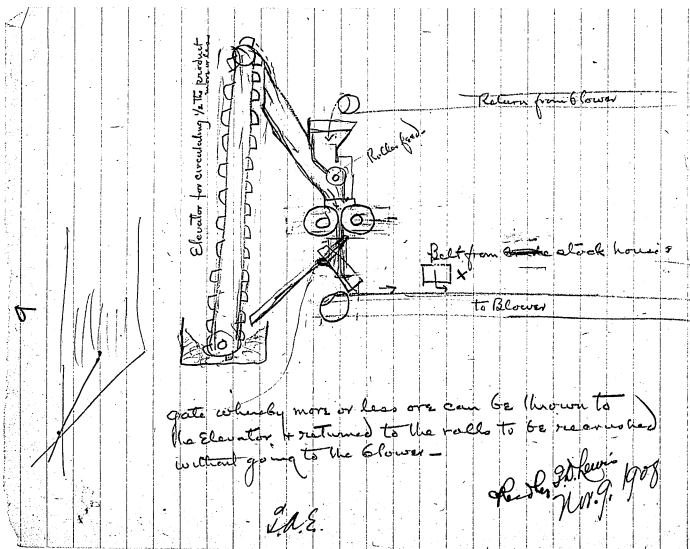 Elevator for circulating 1/2 the product
more or less
Return from blower
Roller feed
Belt from stock house
x
to Blower
gate whereby more or less ore can be thrown to
the Elevator + returned to the rolls to be recrushed
without going to the blower —
Nov. 9. 1908
T.A.E.
9